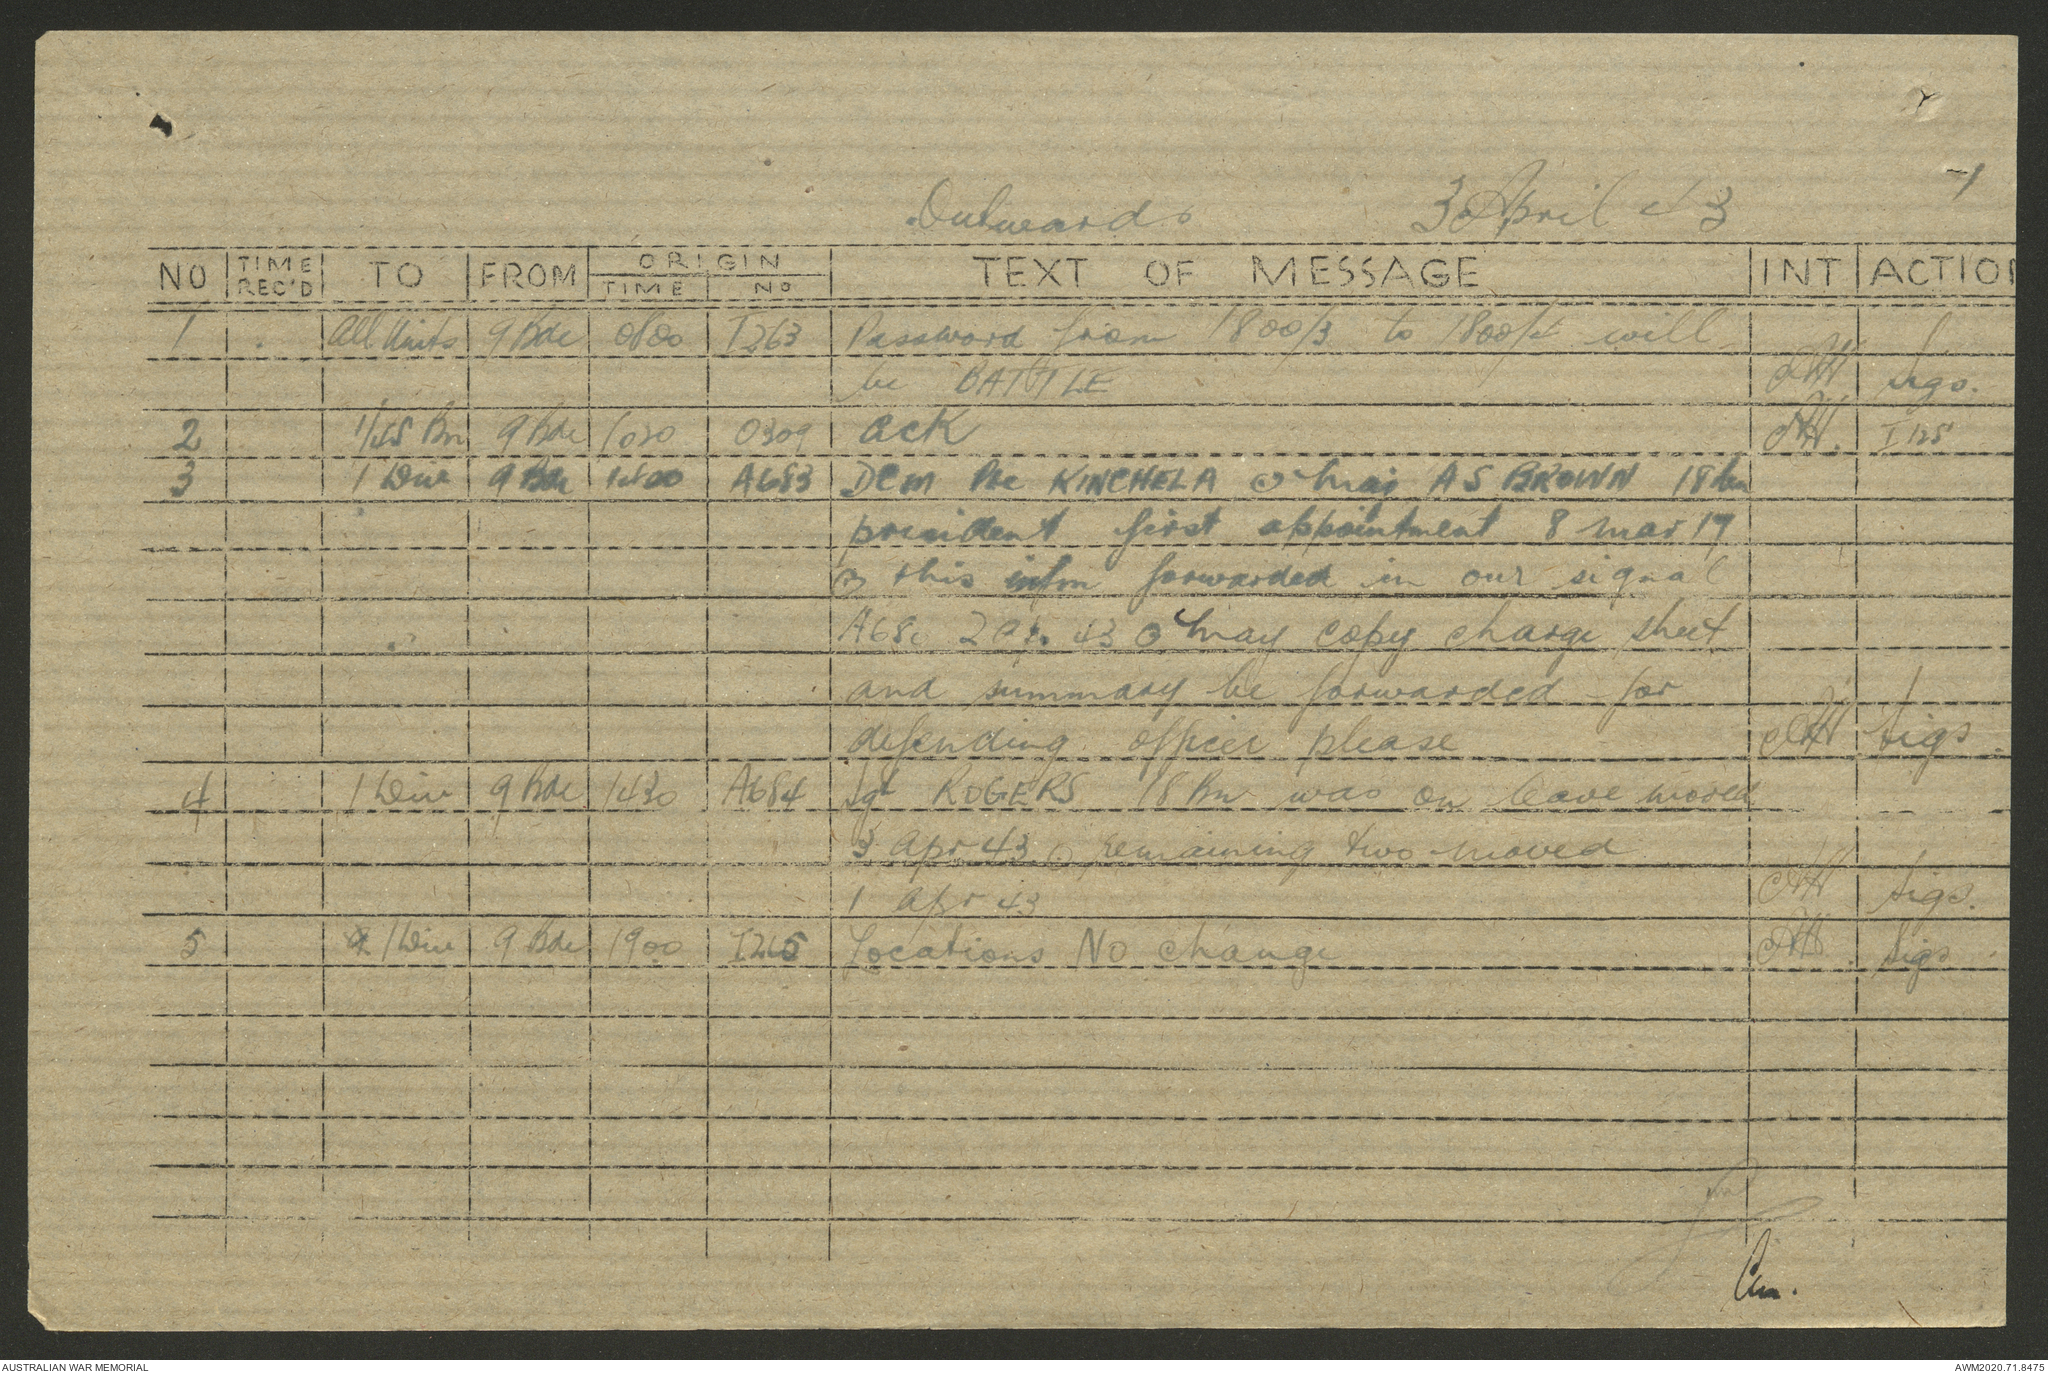 Outwards 3 April 43
NO TIME REC'D TO FROM ORIGIN TIME NO TEXT OF MESSAGE INT ACTION
1 All Units 9 Bde 0800 I263 Password from 1800/3 to 1800/4 will
be BATTLE AH Sigs.
2 1/45 Bn 9 Bde 1030 O309 ack AH. I125
3 1 Div 9 Bde 1400 A683 DCM Pte KINCHELA Maj A S BROWN 18 Bn
president first appointment 8 Mar 17
this infm forwarded in our signal
43 may copy charge sheet
and summary be forwarded for
defending officer please AH Sigs.
4 1 Div 9 Bde 1430 A684 Sgt ROGERS 18 Bn was on leave moved
3 Apr 43 remaining two moved
1 Apr 43 AH Sigs.
5 1 Div 9 Bde 1900 I265 Locations No change AH. Sigs.
AUSTRALIAN WAR MEMORIAL AWM2020.71.8475